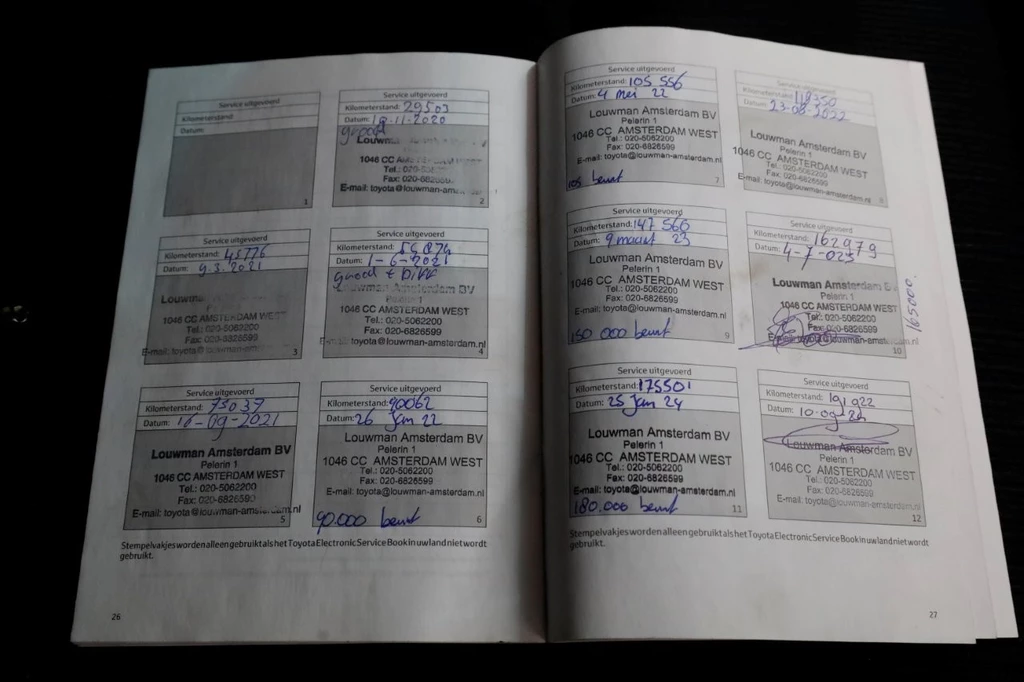 Service uitgevoerd
Kilometerstand:
Datum:
1
Service uitgevoerd
Kilometerstand: 29503
Datum: -11-2020
groot
Louwm
1046 CC
Tel.: 020-
Fax: 020-6826599
E-mail: toyota@louwman-am
2
Service uitgevoerd
Kilometerstand: 45776
Datum: 9.3.2021
Louwm
1046 CC AMSTERDAM WEST
Tel.: 020-5062200
Fax: 020-6826599
E-mail: toyota@louwman-am
3
Service uitgevoerd
Kilometerstand:
Datum: 1-6-2021
Louwman Amsterdam BV
Pelerin 1
1046 CC AMSTERDAM WEST
Tel.: 020-5062200
Fax: 020-6826599
E-mail: toyota@louwman-amsterdam.nl
4
Service uitgevoerd
Kilometerstand: 75037
Datum: 16-09-2021
Louwman Amsterdam BV
Pelerin 1
1046 CC AMSTERDAM WEST
Tel.: 020-5062200
Fax: 020-6826599
E-mail: toyota@louwman-amsterdam.nl
5
Service uitgevoerd
Kilometerstand: 90062
Datum: 26 Jan 22
Louwman Amsterdam BV
Pelerin 1
1046 CC AMSTERDAM WEST
Tel.: 020-5062200
Fax: 020-6826599
E-mail: toyota@louwman-amsterdam.nl
90.000 beurt
6
Stempelvakjes worden alleen gebruikt als het Toyota Electronic Service Book in uw land niet wordt
gebruikt.
26
Service uitgevoerd
Kilometerstand: 105 556
Datum: 4 mei 22
Louwman Amsterdam BV
Pelerin 1
1046 CC AMSTERDAM WEST
Tel.: 020-5062200
Fax: 020-6826599
E-mail: toyota@louwman-amsterdam.nl
105 beurt
7
Service uitgevoerd
Kilometerstand: 118350
Datum: 23-08-2022
Louwman Amsterdam BV
Pelerin 1
1046 CC AMSTERDAM WEST
Tel.: 020-5062200
Fax: 020-6826599
E-mail: toyota@louwman-amsterdam.nl
8
Service uitgevoerd
Kilometerstand: 147 560
Datum: 9 maart 23
Louwman Amsterdam BV
Pelerin 1
1046 CC AMSTERDAM WEST
Tel.: 020-5062200
Fax: 020-6826599
E-mail: toyota@louwman-amsterdam.nl
150 000 beurt
9
Service uitgevoerd
Kilometerstand: 162979
Datum: 4-7-023
Louwman Amsterdam B
Pelerin 1
1046 CC AMSTERDAM WEST
Tel.: 020-5062200
Fax: 020-6826599
E-mail: toyota@louwman-amsterdam.nl
10
165000
Service uitgevoerd
Kilometerstand: 175501
Datum: 25 Jan 24
Louwman Amsterdam BV
Pelerin 1
1046 CC AMSTERDAM WEST
Tel.: 020-5062200
Fax: 020-6826599
E-mail: toyota@louwman-amsterdam.nl
180.000 beurt
11
Service uitgevoerd
Kilometerstand: 191922
Datum: 10-09-24
Louwman Amsterdam BV
Pelerin 1
1046 CC AMSTERDAM WEST
Tel.: 020-5062200
Fax: 020-6826599
E-mail: toyota@louwman-amsterdam.nl
12
Stempelvakjes worden alleen gebruikt als het Toyota Electronic Service Book in uw land niet wordt
gebruikt.
27